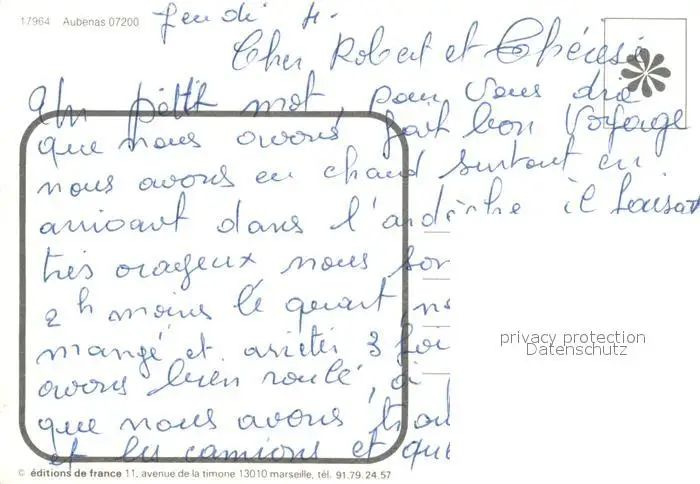 17964 Aubenas 07200
Jeudi 4.
Cher Robert et Thérèse
Un petit mot pour vous dire
que nous avons fait bon Voyage
nous avons eu chaud surtout en
arrivant dans l'ardèche il faisait
très orageux nous son
2h moins le quart, no
mangé et arrêter 3 foi
avons bien roulé, à
que nous avons trou
et les camions et que
privacy protection
Datenschutz
© éditions de france 11, avenue de la timone 13010 marseille, tél. 91.79.24.57